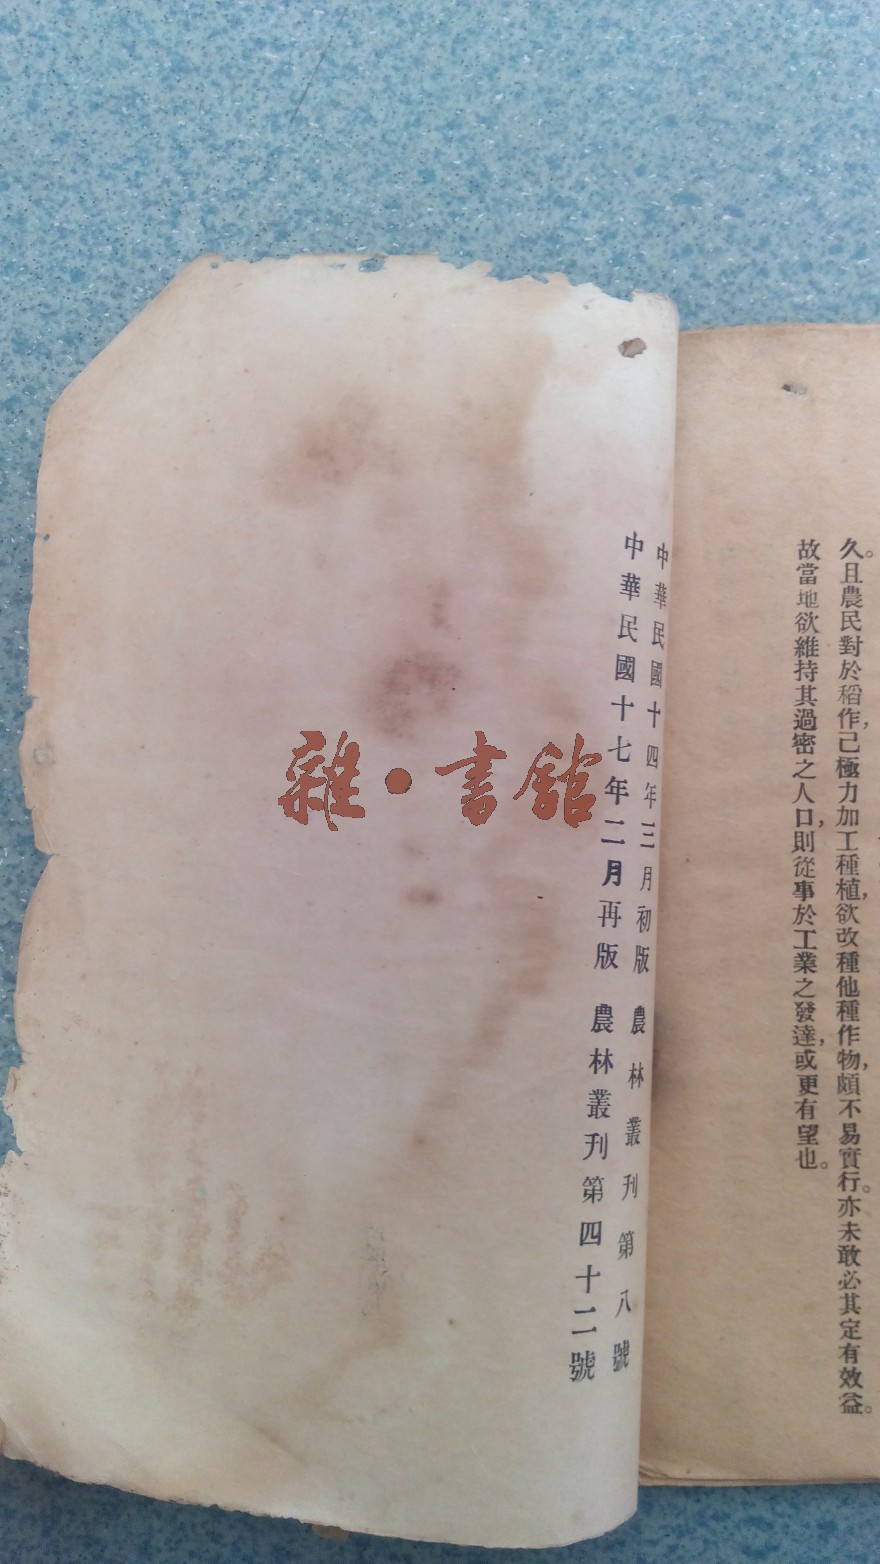 久且農民對於稻作,已極力加工種植,欲改種他種作物,頗不易實行。亦未敢必其定有效益。
故當地欲維持其過密之人口,則從事於工業之發達,或更有望也。
中華民國十四年三月初版 農林叢刊第八號
中華民國十七年二月再版 農林叢刊第四十二號
雜·書館